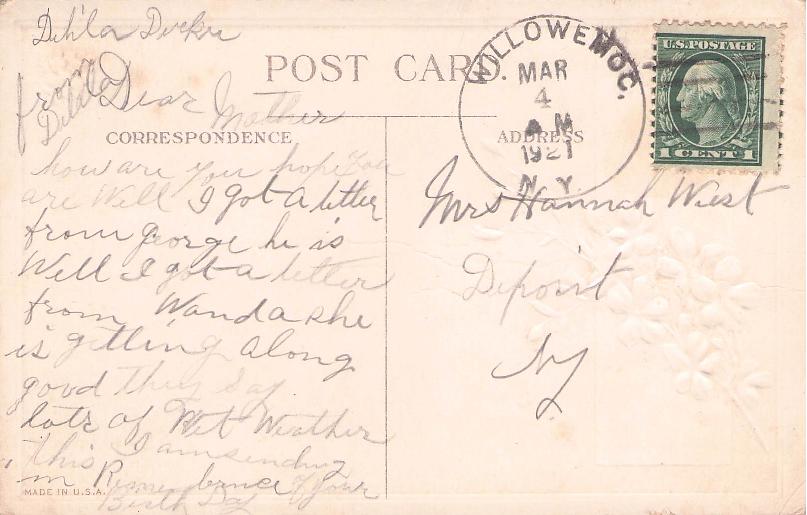 Dehla Decker
POST CARD.
WILLOWEMOC.
MAR
4
AM
1921
N.Y.
U.S. POSTAGE
1 CENT 1
from
Delila
Dear Mother
CORRESPONDENCE
ADDRESS
how are you hope you
are Well I got a letter
from george he is
Well I got a letter
from Wanda she
is getting along
good they say
lots of Wet Weather
this I am sending
in Remembernce of your
Birth Day
MADE IN U.S.A.
Mrs Hannah West
Deposit
NY